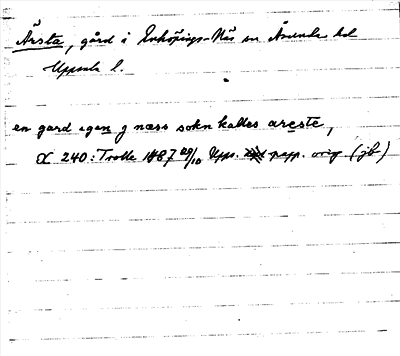 Årsta, gård i Enköpings-Näs sn Åsunda hd
Uppsala l.
en gard igen j næss sokn kalles areste,
X 240: Trolle 1487 29/10 Upps. papp. orig (jb)